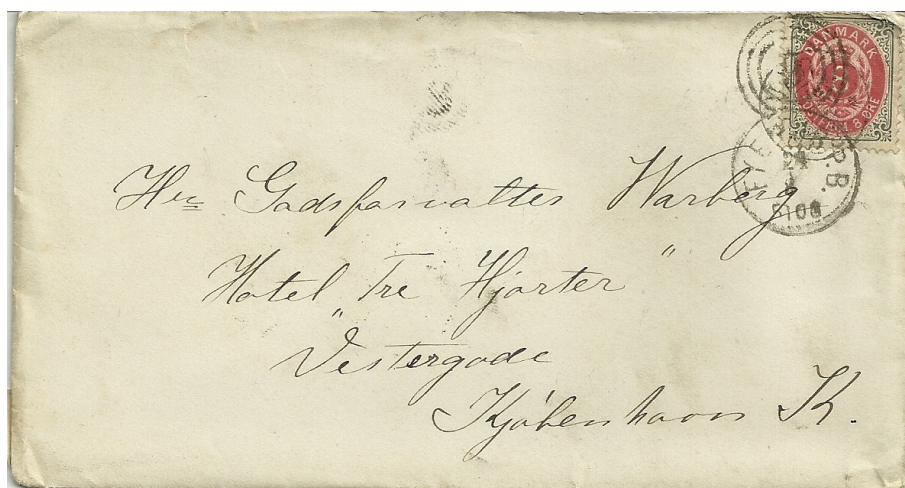 DANMARK
POSTFRIM 8 ØRE
P.B.
Hr. Godsforvalter Warberg
Hotel „Tre Hjorter"
Vestergade
Kjöbenhavn K.